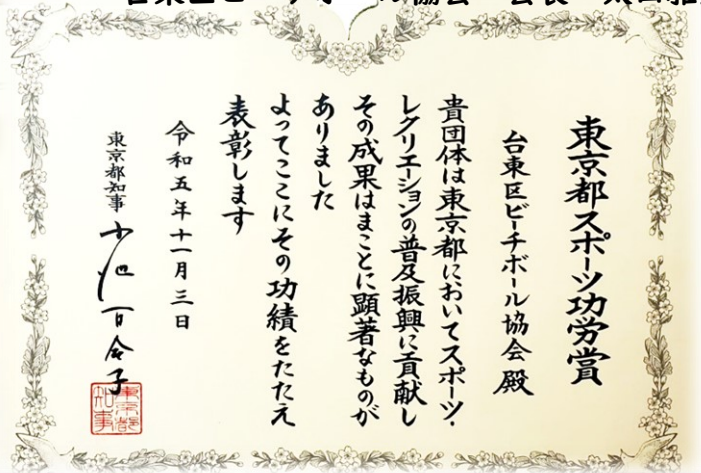 東京都スポーツ功労賞
台東区ビーチボール協会 殿
貴団体は東京都においてスポーツ・
レクリエーションの普及振興に貢献し
その成果はまことに顕著なものが
ありました
よってここにその功績をたたえ
表彰します
令和五年十一月三日
東京都知事 小池百合子
東京都知事